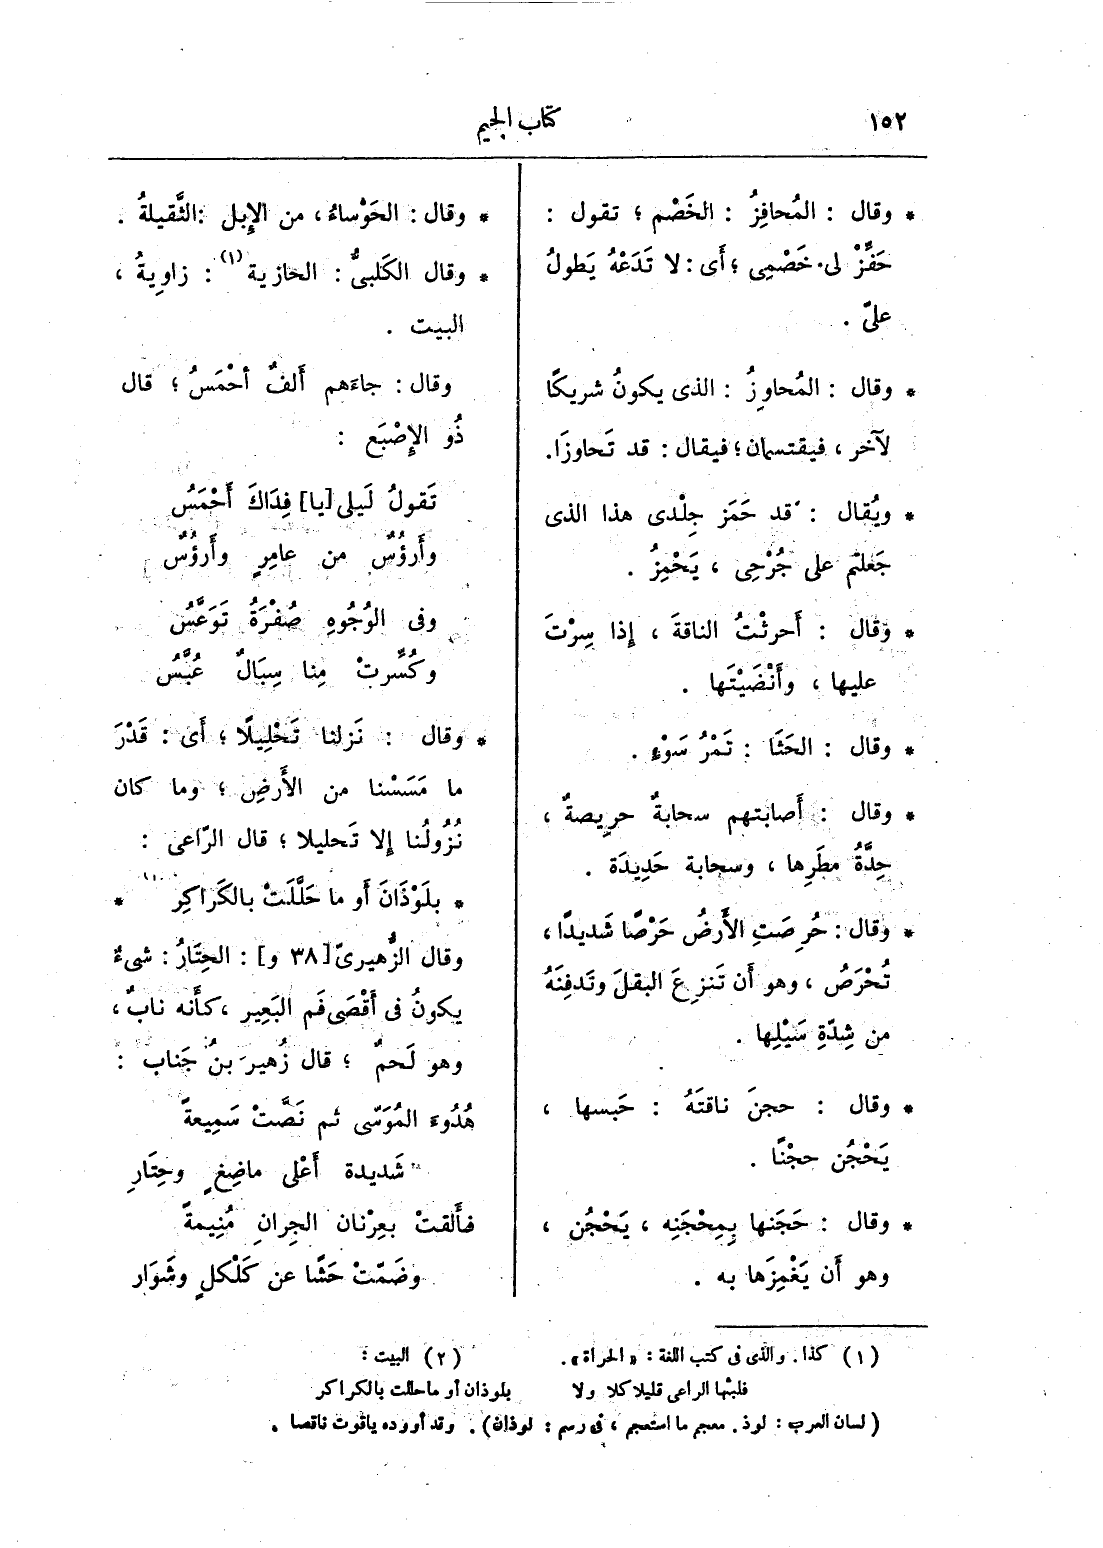 ١٥٢
كتاب الجيم
* وقال : المُحافِزُ : الخَصْم ؛ تقول :
حَفِّزْ لى خَصْمِى ؛ أَى : لا تَدَعْهُ يَطولُ
علىّ .
* وقال : المُحاوِزُ : الذى يكونُ شريكًا
لآخر ، فيقتسمان ؛ فيقال : قد تَحاوزَا.
* ويُقال : قد حَمَز جِلْدى هذا الذى
جَعلتم على جُرْحِى ، يَحْمِزُ .
* وقال : أَحرثْتُ الناقةَ ، إِذا سِرْتَ
عليها ، وأَنْضَيْتَها .
* وقال : الحَثَا : تَمْرُ سَوْءٍ .
* وقال : أَصابتهم سحابةٌ حرِيصةٌ ،
حِدَّةُ مطَرِها ، وسحابة حَدِيدَة .
* وقال : حُرِصَتِ الأَرضُ حَرْصًا شَديدًا ،
تُحْرَصُ ، وهو أَن تَنزِعَ البقلَ وتَدفِنَهُ
من شِدّةِ سَيْلِها .
* وقال : حجنَ ناقتَهُ : حَبسها ،
يَحْجُن حجْنًا .
* وقال : حَجَنها بِمِحْجَنِه ، يَحْجُن ،
وهو أَن يَغْمِزَها به .
* وقال : الحَوْساءُ ، من الإِبل : الثَّقيلةُ .
* وقال الكَلبىُّ : الحازية(١) : زاوِيةُ ،
البيت .
وقال : جاءَهم أَلفٌ أحْمَسُ ؛ قال
ذُو الإِصْبَع :
تَقولُ لَيلى [يا] فِدَاكَ أَحْمَسُ
وأَرؤُسٌ من عامِرٍ وأَرؤُسٌ
وفى الوُجُوهِ صُفْرَةُ تَوَعَّسُ
وكُسِّرتْ مِنا سِبَالٌ عُبَّسُ
* وقال : نَزلنا تَحْلِيلًا ؛ أَى : قَدْرَ
ما مَسَسْنا من الأَرضِ ؛ وما كان
نُزُولُنا إِلا تَحليلا ؛ قال الرّاعى :
* بلَوْذَانَ أَو ما حَلَّلَتْ بالكَراكِر *
وقال الزُّهيرىّ [٣٨ و] : الحِتَارُ : شىءٌ
يكونُ فى أَقْصَى فَم البَعِير ، كأَنه نابٌ ،
وهو لَحمٌ ؛ قال زُهير بنُ جَناب :
هُدُوءَ المُوَسّى ثم نَصَّتْ سَمِيعةً
شَديدة أَعْلى ماضِغٍ وحِتَارِ
فأَلقتْ بعِرْنان الجِرانِ مُنِيمةً
وضَمّتْ حَشًا عن كَلْكلٍ وشَوَار
(١) كذا . والذى فى كتب اللغة : «الحراة» .
(٢) البيت :
فلبثها الراعى قليلا كلا ولا بلوذان أو ما حللت بالكراكر
( لسان العرب : لوذ . معجم ما استعجم ، فى رسم : لوذان) . وقد أورده ياقوت ناقصا .